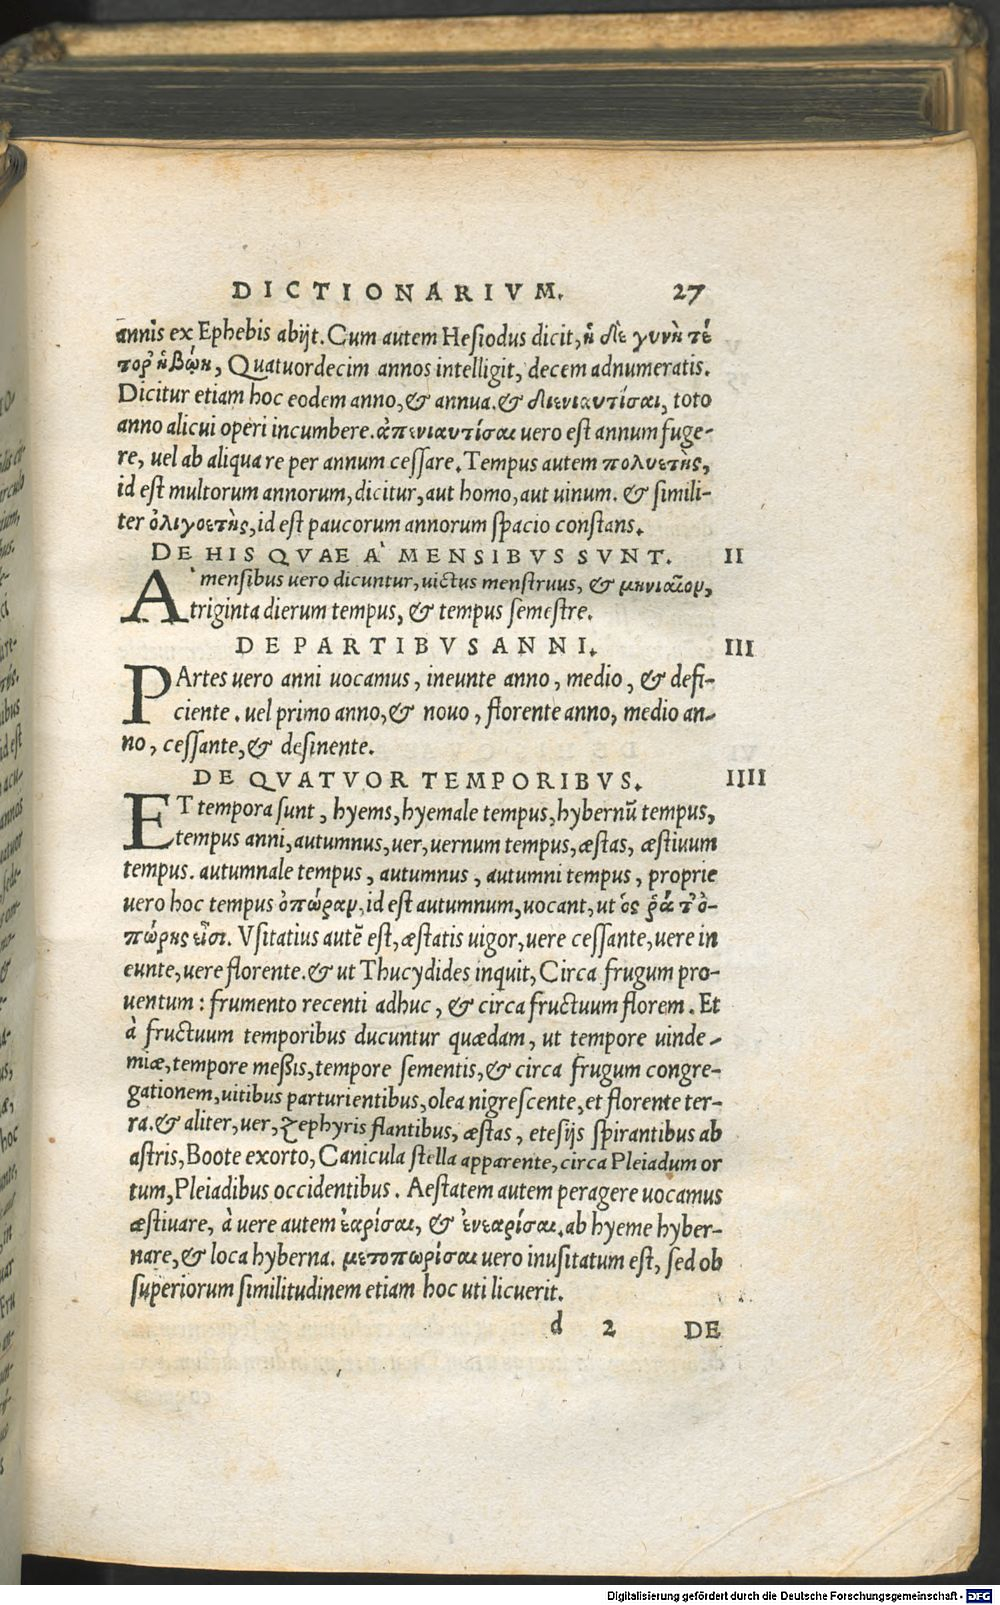 DICTIONARIVM. 27
annis ex Ephebis abijt. Cum autem Hesiodus dicit, ἡ δὲ γυνὴ τέ
τορ᾽ ἡβῴη, Quatuordecim annos intelligit, decem adnumeratis.
Dicitur etiam hoc eodem anno, & annua. & διενιαυτίσαι, toto
anno alicui operi incumbere. ἀπενιαυτίσαι uero est annum fuge-
re, uel ab aliqua re per annum cessare. Tempus autem πολυετὴς,
id est multorum annorum, dicitur, aut homo, aut uinum. & simili-
ter ὀλιγοετὴς, id est paucorum annorum spacio constans.
DE HIS QVAE A` MENSIBVS SVNT. II
A` mensibus uero dicuntur, uictus menstruus, & μηνιαῖον,
triginta dierum tempus, & tempus semestre.
DE PARTIBVS ANNI. III
PArtes uero anni uocamus, ineunte anno, medio, & defi-
ciente. uel primo anno, & nouo, florente anno, medio an-
no, cessante, & desinente.
DE QVATVOR TEMPORIBVS. IIII
ET tempora sunt, hyems, hyemale tempus, hybernũ tempus,
tempus anni, autumnus, uer, uernum tempus, æstas, æstiuum
tempus. autumnale tempus, autumnus, autumni tempus, proprie
uero hoc tempus ὀπώραν, id est autumnum, uocant, ut ὅς ῥά τ᾽ ὀ-
πώρης εἶσι. Vsitatius autẽ est, æstatis uigor, uere cessante, uere in
eunte, uere florente. & ut Thucydides inquit, Circa frugum pro-
uentum: frumento recenti adhuc, & circa fructuum florem. Et
à fructuum temporibus ducuntur quædam, ut tempore uinde-
miæ, tempore meßis, tempore sementis, & circa frugum congre-
gationem, uitibus parturientibus, olea nigrescente, et florente ter-
ra. & aliter, uer, zephyris flantibus, æstas, etesijs spirantibus ab
astris, Boote exorto, Canicula stella apparente, circa Pleiadum or
tum, Pleiadibus occidentibus. Aestatem autem peragere uocamus
æstiuare, à uere autem ἐαρίσαι, & ἐνεαρίσαι. ab hyeme hyber-
nare, & loca hyberna. μετοπωρίσαι uero inusitatum est, sed ob
superiorum similitudinem etiam hoc uti licuerit.
d 2 DE
Digitalisierung gefördert durch die Deutsche Forschungsgemeinschaft - DFG